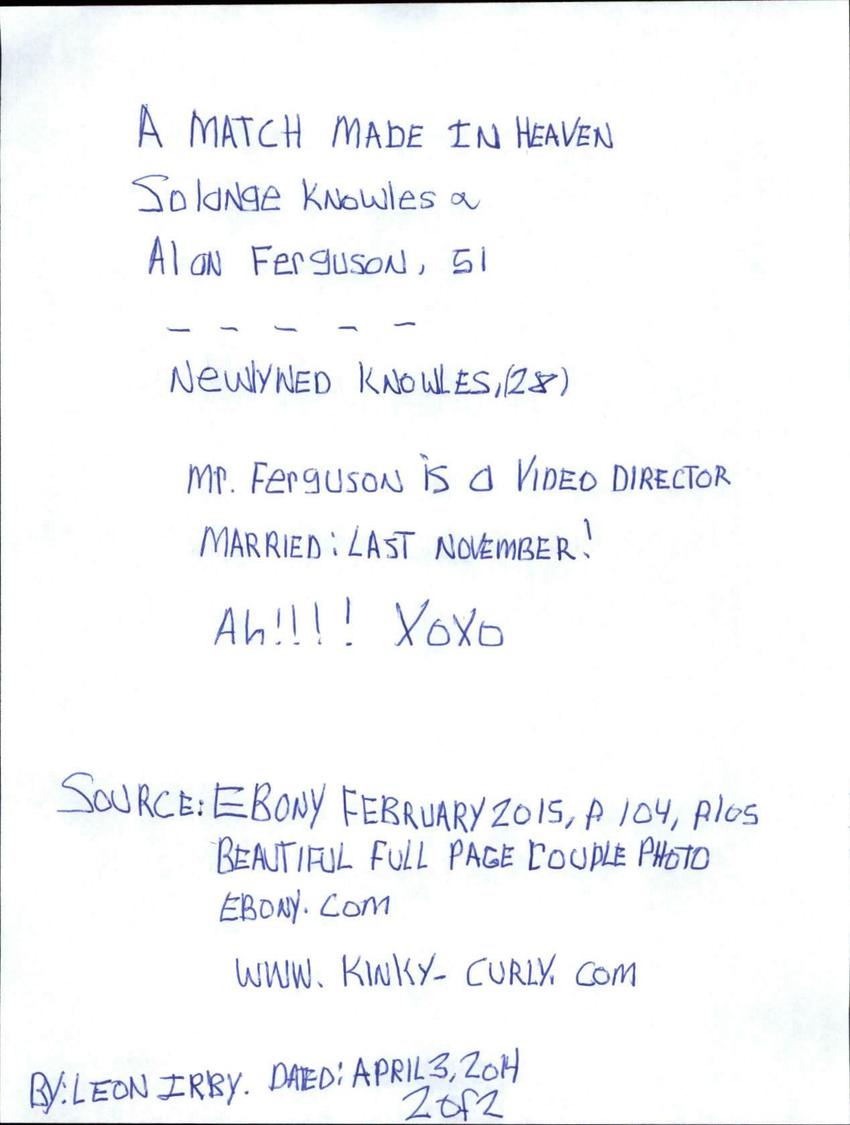 A MATCH MADE IN HEAVEN
Solange Knowles &
Alan Ferguson, 51
— — — — —
NewlyNED KNOWLES, (28)
Mr. Ferguson is a VIDEO DIRECTOR
MARRIED: LAST NOVEMBER!
Ah!!!! XoXo
SOURCE: EBONY FEBRUARY 2015, P 104, P105
BEAUTIFUL FULL PAGE COUPLE PHOTO
EBONY. Com
WWW. KINKY- CURLY. COM
BY: LEON IRBY. DATED: APRIL 3, 2014
2 of 2